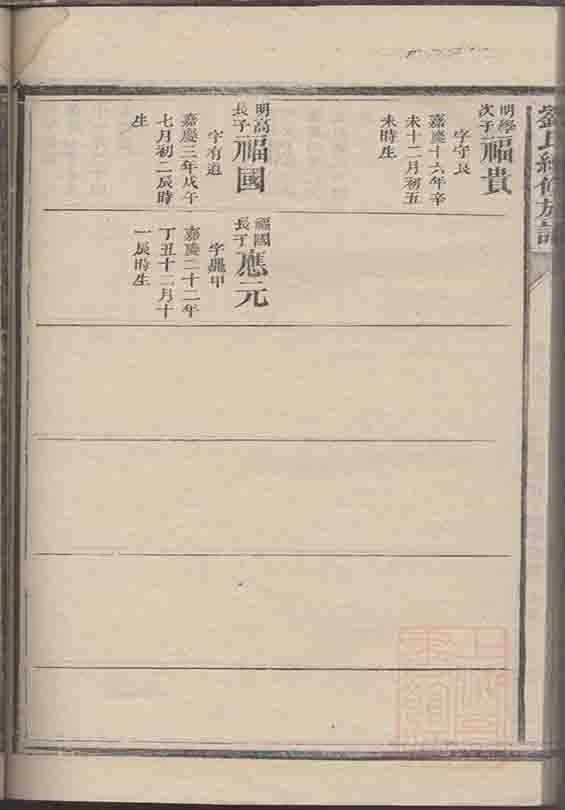 劉氏續修族譜
明學
次子
福貴
字守良
嘉慶十六年辛
未十二月初五
未時生
明高
長子
福國
字有道
嘉慶三年戊午
七月初二辰時
生
福國
長子
應元
字鼇甲
嘉慶二十二年
丁丑十二月十
一辰時生